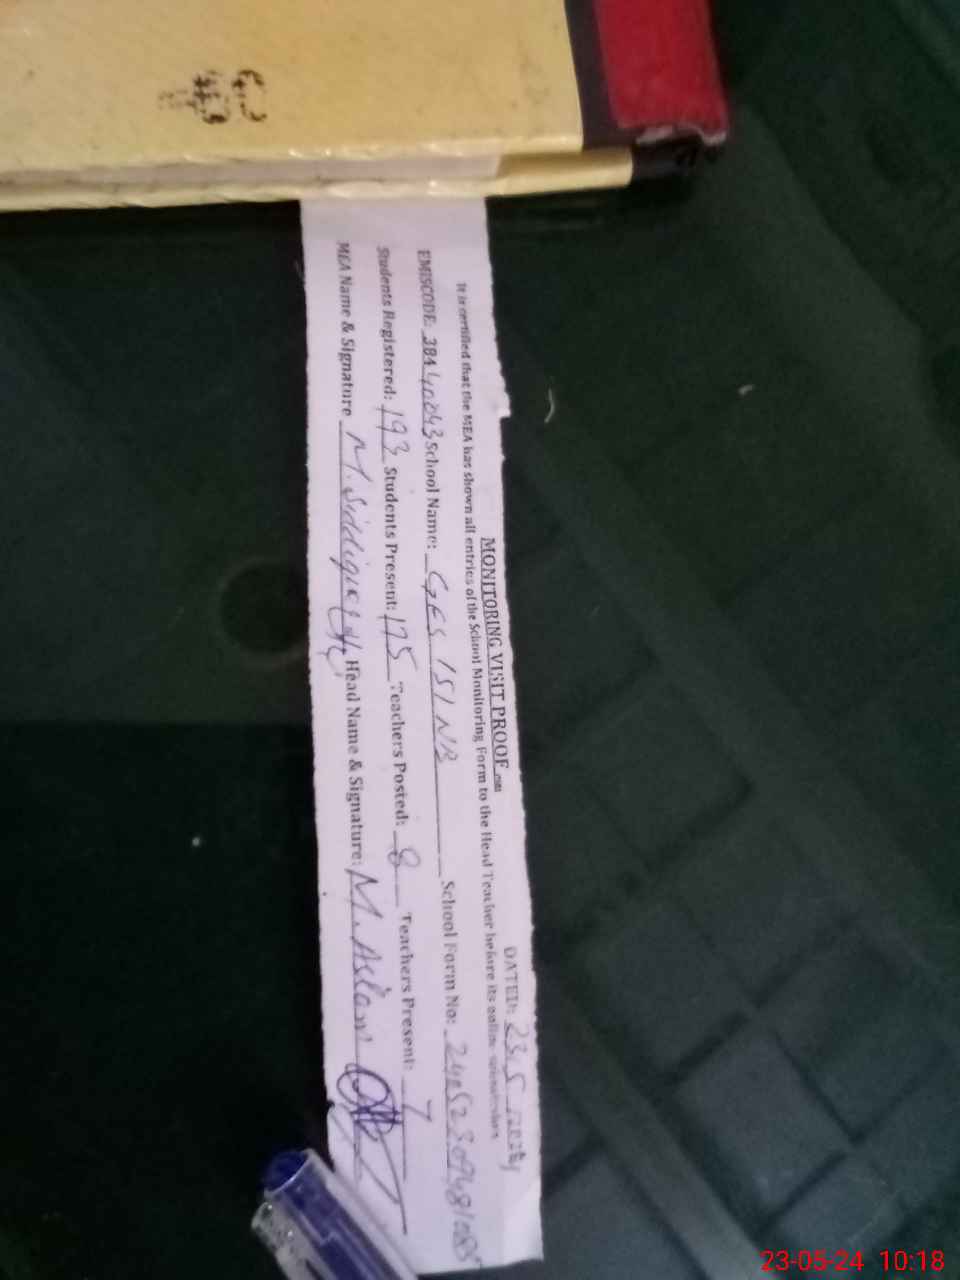 MONITORING VISIT PROOF
DATED: 23.5.2024
It is certified that the MEA has shown all entries of the School Monitoring Form to the Head Teacher before its online submission
EMISCODE: 38440043 School Name: GES 151 NB School Form No:
Students Registered: 193 Students Present: 175 Teachers Posted: 8 Teachers Present: 7
MEA Name & Signature M. Siddique Head Name & Signature: M. Aslam
23-05-24 10:18